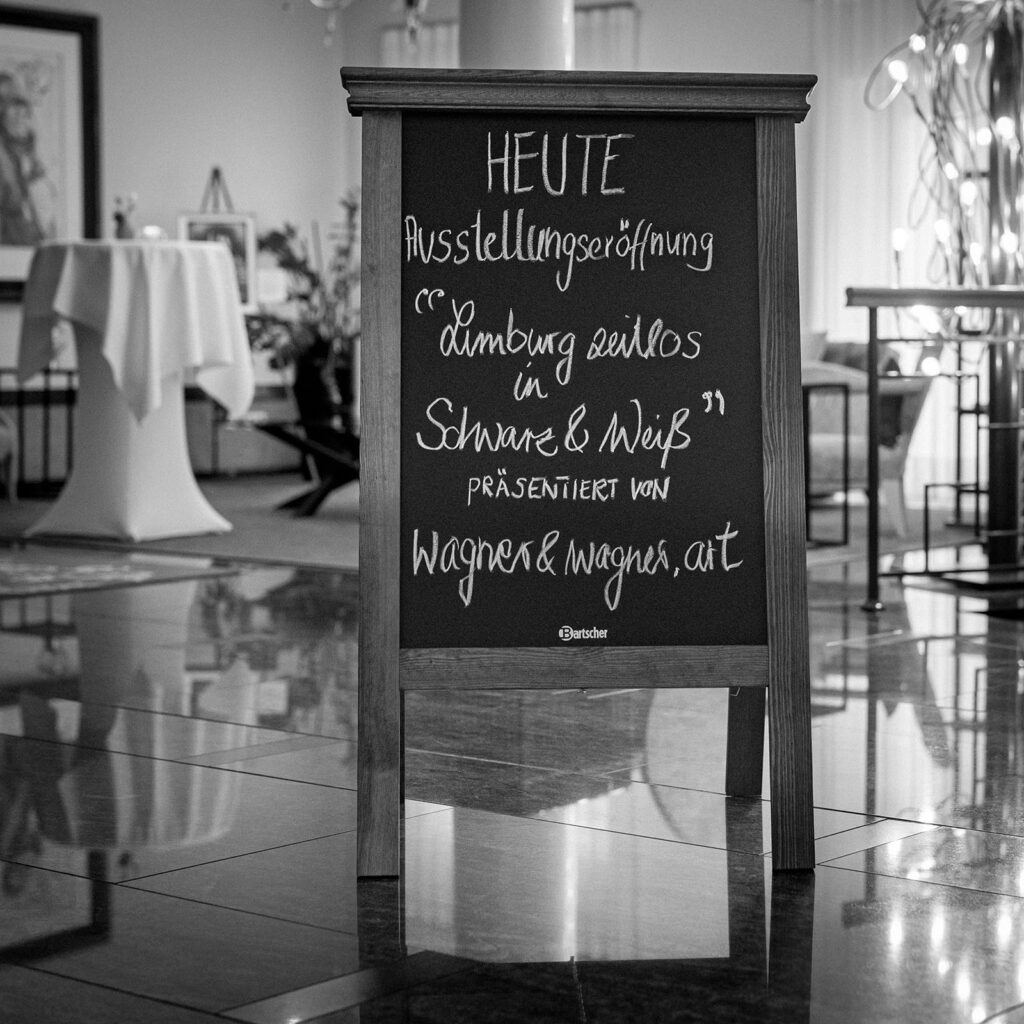 HEUTE
Ausstellungseröffnung
“Limburg zeitlos
in
Schwarz & Weiß”
PRÄSENTIERT VON
Wagner & wagner.art
Bartscher